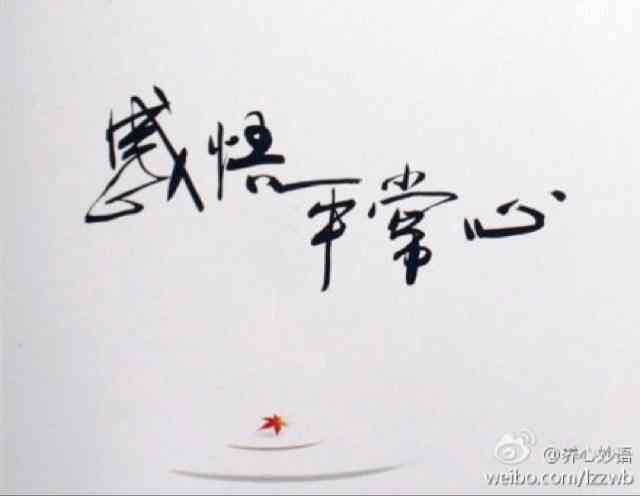 感悟平常心
@养心妙语
weibo.com/lzzwb